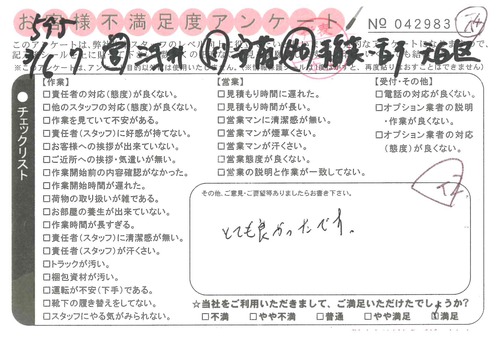 お客様不満足度アンケート
№ 042983
【作業】
□責任者の対応(態度)が良くない。
□他のスタッフの対応(態度)が良くない。
□作業を見ていて不安がある。
□責任者(スタッフ)に好感が持てない。
□お客様への挨拶が出来ていない。
□ご近所への挨拶・気遣いが無い。
□作業開始前の内容確認がなかった。
□作業開始時間が遅れた。
□荷物の取り扱いが雑である。
□お部屋の養生が出来ていない。
□作業時間が長すぎる。
□責任者(スタッフ)に清潔感が無い。
□責任者(スタッフ)が汗くさい。
□トラックが汚い。
□梱包資材が汚い。
□運転が不安(下手)である。
□靴下の履き替えをしてない。
□スタッフにやる気がみられない。
【営業】
□見積もり時間に遅れた。
□見積もり時間が長い。
□営業マンに清潔感が無い。
□営業マンが煙草くさい。
□営業マンが汗くさい。
□営業態度が良くない。
□営業の説明と作業が一致してない。
【受付・その他】
□電話の対応が良くない。
□オプション業者の説明
・作業が良くない。
□オプション業者の対応
(態度)が良くない。
チェックリスト
その他、ご意見・ご要望等ありましたらお書き下さい。
とても良かったです。
☆当社をご利用いただきまして、ご満足いただけたでしょうか?
□不満 □やや不満 □普通 □やや満足 □満足